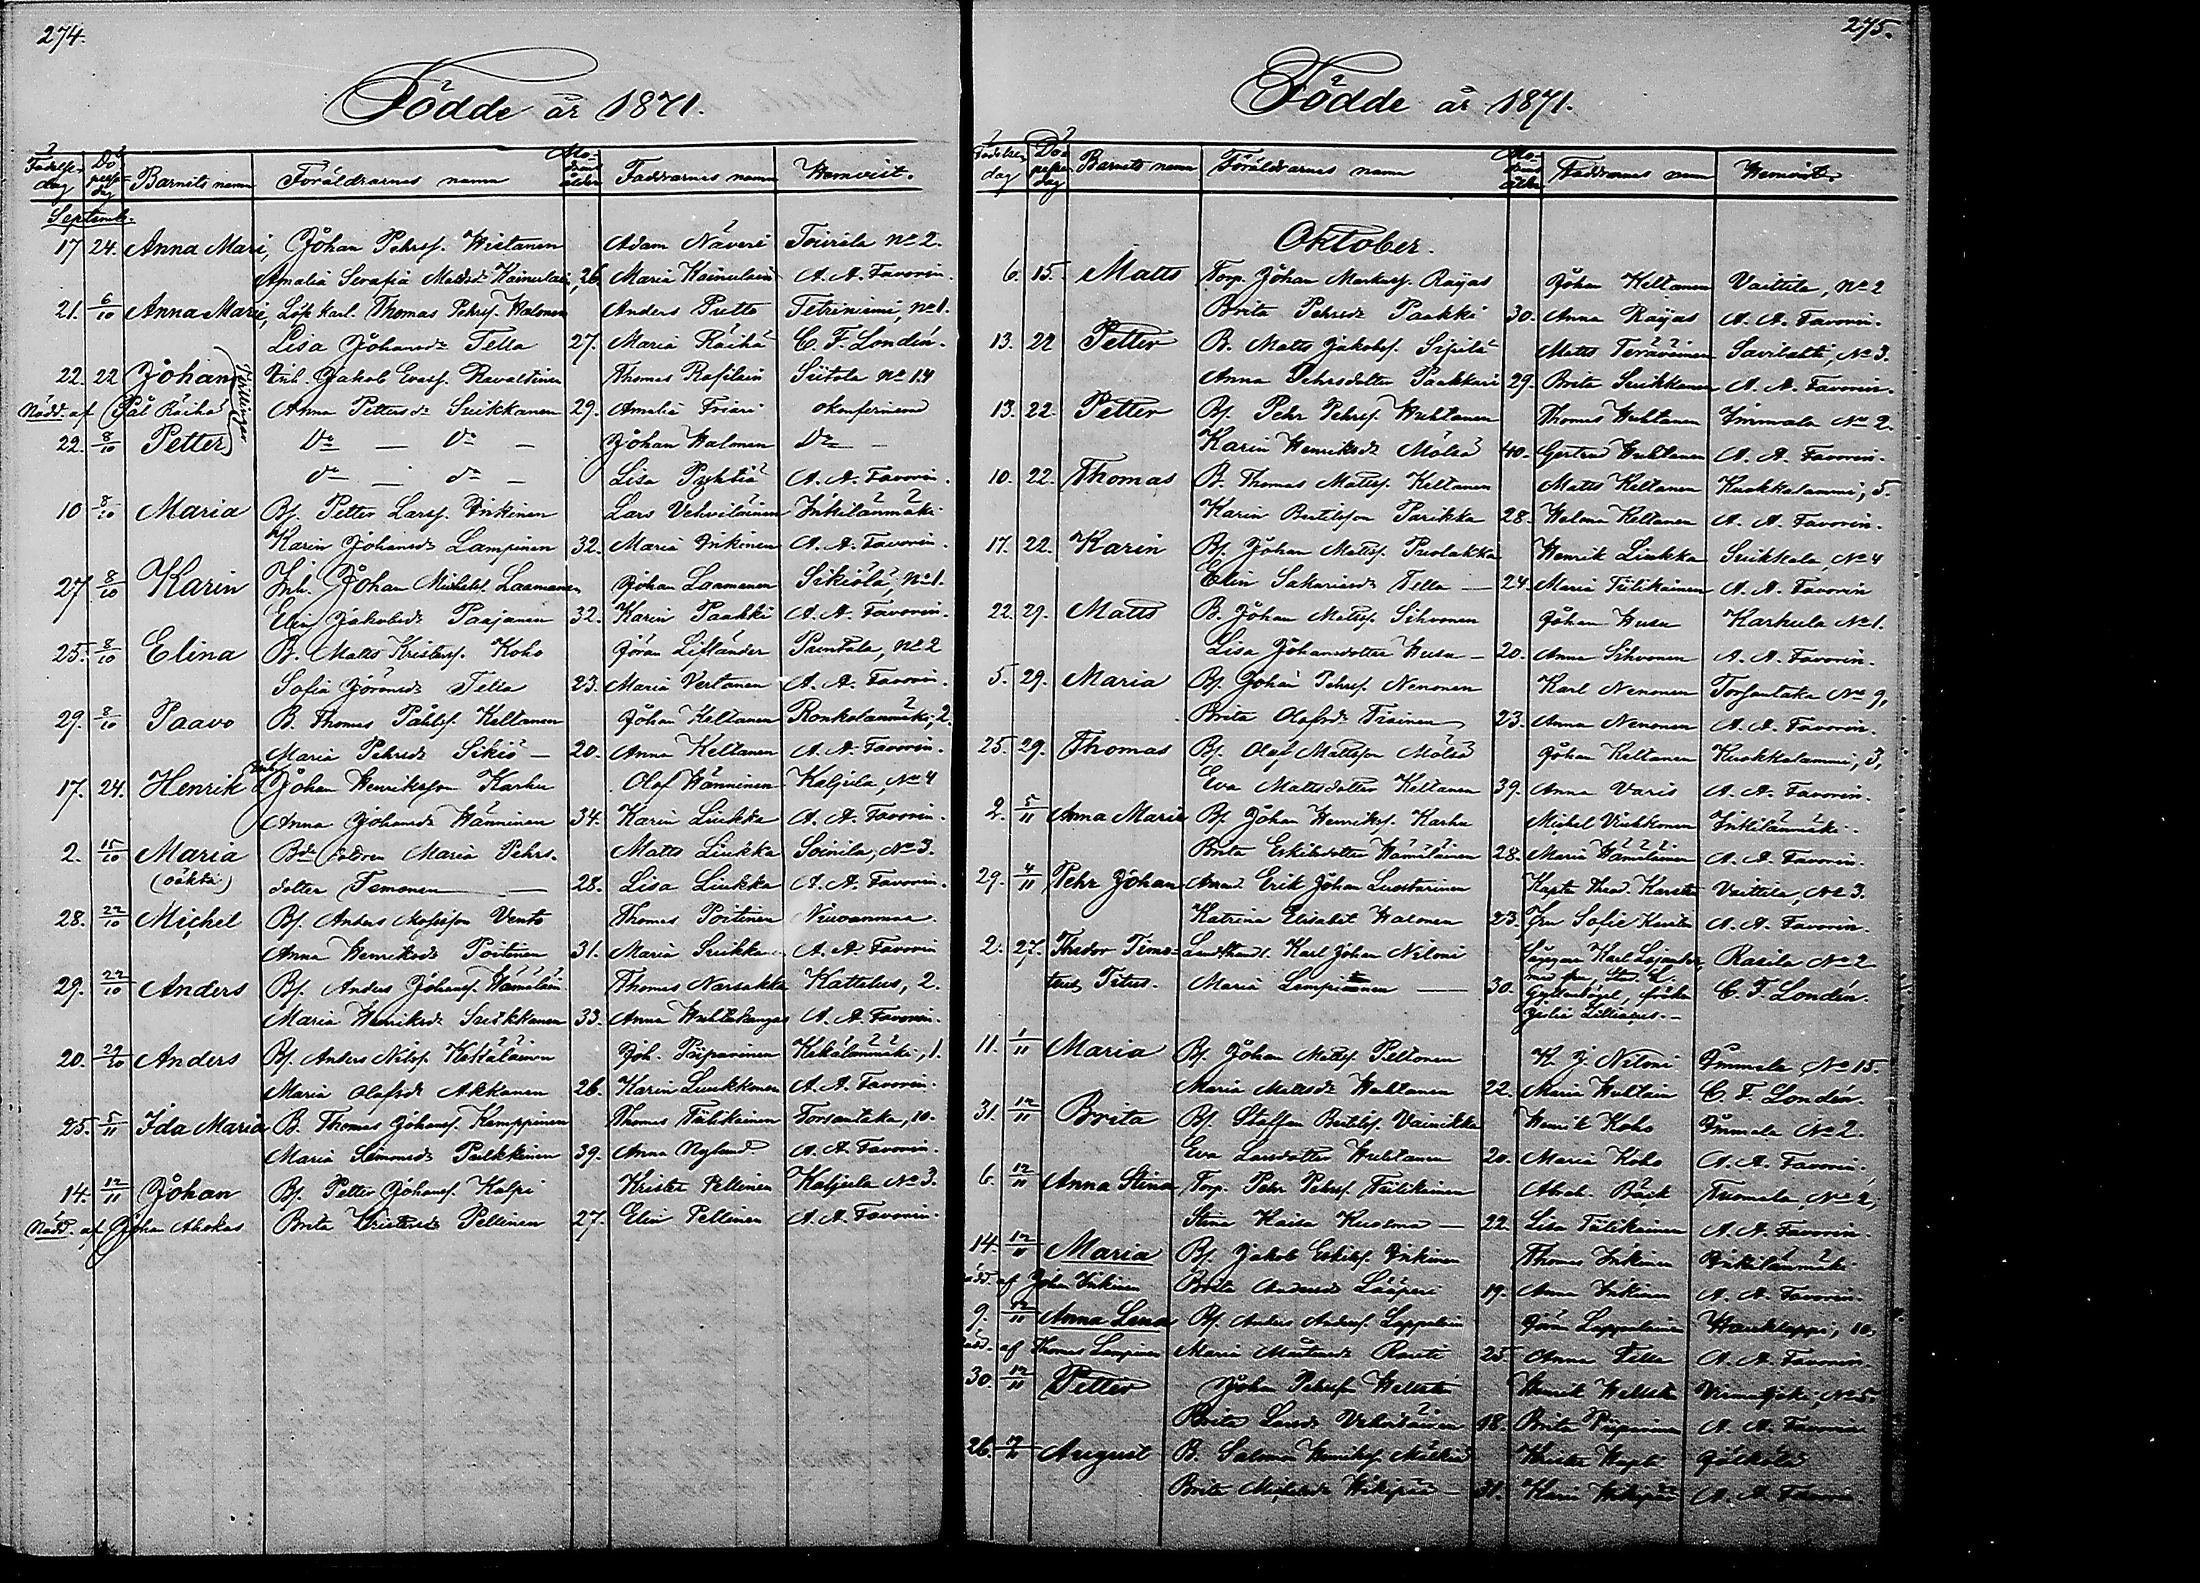 274.
Födde år 1871.
Födelse dag Dopelse dag Barnets namn Föräldrarnes namn Moderns ålder Faddrarnes namn Hemvist.
September
17 24. Anna Mari, Johan Pehrsf. Hietanen Adam Näveri Toivola No 2.
Amalia Serafia Mattsdr Kainulain, 26. Maria Kainulain A. A. Favorin.
21. 6/10 Anna Mari, Lösk karl. Thomas Pehrsf. Halonen Anders Putto Tetriniemi, No 1.
Lisa Johansdr Tella 27. Maria Räihä C. F. Londén.
22. 22 Johan Inh. Jakob Evasf. Ravattinen Thomas Rasilain Siitola No 14
Nödd. af Pål Räihä Tvillingar Anna Pettersdr Suikkanen 29. Amalia Friari
22. 8/10 Petter Do — Do — Johan Halonen Do —
do — do — Lisa Pyhtiä A. A. Favorin.
10 8/10 Maria Bf. Petter Larsf. Inkinen Lars Vehviläinen Inkilänmäki
Karin Johansdr Lampinen 32. Maria Inkinen A. A. Favorin.
27 8/10 Karin Inh. Johan Michelsf. Laamanen Johan Laamanen Sikiölä, No 1.
Elin Jakobsdr Paajanen 32. Karin Paakki A. A. Favorin.
25. 8/10 Elina B. Matts Kristersf. Koho Jöran Lifländer Puntala, No 2
Sofia Jöransdr Tella 23. Maria Vertanen A. A. Favorin.
29. 8/10 Paavo B. Thomas Påhlsf. Keltanen Johan Keltanen Ronkalanmäki, 2.
Maria Pehrsdr Sikiö — 20. Anna Keltanen A. A. Favorin.
17. 24. Henrik Johan Henriksson Karhu Olof Hänninen Kaljula, No 4
Anna Johansdr Hänninen 34. Karin Liukka A. A. Favorin.
2. 15/10 Maria Maria Pehrs- Matts Liukka Soinila, No 3.
(oäkta) dotter Temonen — 28. Lisa Liukka A. A. Favorin.
28. 22/10 Michel Bf. Anders Vento Thomas Poitinen
Anna Henriksdr Poitinen 31. Maria Suikka A. A. Favorin
29. 22/10 Anders Bf. Anders Johansf. Hämäläin Thomas Narsakka Kattelus, 2.
Maria Henriksdr Suikkanen 33. Anna Huhtakangas A. A. Favorin.
20. 29/10 Anders Bf. Anders Nilsf. Kekäläinen Joh. Piiparinen Kekälänmäki, 1.
Maria Olofsdr Akkanen 26. Karin Luukkonen A. A. Favorin.
25. 5/11 Ida Maria B. Thomas Johansf. Kamppinen Thomas Tiilikainen Torsantaka, 10.
Maria Simonsdr Pulkkinen 39. Anna Nylund A. A. Favorin.
14. 12/11 Johan Bf. Petter Johansf. Kalpi Krister Pellinen Kaljula No 3.
Nödd. af Johan Ahokas Brita Kristersdr Pellinen 27. Elin Pellinen A. A. Favorin.
275.
Födde år 1871.
Födelse dag Dopelse dag Barnets namn Föräldrarnes namn Moderns ålder Faddrarnes namn Hemvist.
Oktober.
6. 15. Matts Torp. Johan Markusf. Rayas Johan Keltanen Vaittila, No 2
Brita Pehrsdr Paakki 30. Anna Rayas A. A. Favorin.
13. 22 Petter B. Matts Jakobsf. Sipilä Matts Teräväinen Savilahti, No 3.
Anna Pehrsdotter Paakkari 29. Brita Suikkanen A. A. Favorin.
13. 22. Petter Bf. Pehr Pehrsf. Huhtanen Thomas Huhtanen Immala No 2.
Karin Henriksdr Mölsä 40. Gertrud Huhtanen A. A. Favorin.
10. 22. Thomas B. Thomas Mattsf. Keltanen Matts Keltanen Kuokkalammi, 5.
Karin Bertilsson Parikka 28. Helena Keltanen A. A. Favorin.
17. 22. Karin Bf. Johan Mattsf. Puolakka Henrik Liukka Suikkala, No 4
Elin Sakariasdr Tella — 24. Maria Tiilikainen A. A. Favorin
22. 29. Matts B. Johan Mattsf. Sihvonen Johan Husu Karhula No 1.
Lisa Johansdotter Husu — 20. Anna Sihvonen A. A. Favorin.
5. 29. Maria Bf. Johan Pehrsf. Nenonen Karl Nenonen Torsantaka No 9,
Brita Olofsdr Tiainen 23. Anna Nenonen A. A. Favorin.
25. 29. Thomas Bf. Olof Mattsson Mölsä Johan Keltanen Kuokkalammi, 3,
Eva Mattsdotter Keltanen 39. Anna Varis A. A. Favorin.
2. 5/11 Anna Maria Bf. Johan Henriksf. Karhu Michel Viskkonen Inkilänmäki.
Brita Eskilsdotter Hämäläinen 28. Maria Hämäläinen A. A. Favorin.
29. 4/11 Pehr Johan Erik Johan Luostarinen Kapten Karsten Vaittila, No 3.
Katrina Elisabet Halonen 23. Fru Sofie Karsten A. A. Favorin.
2. 27. Thedor Timo- Landthandl. Karl Johan Niloni Karl Lojander, Rasila No 2
teus Titus. Maria Lempiainen — 30. Gyllenbögel, fröken C. F. Londén.
Julia Lilliacus.—
11. 1/11 Maria Bf. Johan Mattsf. Peltonen K. J. Niloni Immala No 15.
Maria Mattsdr Huhtanen 22. Maria Huhtain C. F. Londén.
31. 12/11 Brita Bf. Staffan Bertilsf. Vainikka Henrik Koho Immala No 2.
Eva Larsdotter Huhtanen 20. Maria Koho A. A. Favorin.
6. 12/11 Anna Stina Torp. Pehr Pehrsf. Tiilikainen Abrah. Bäck Tuomala, No 2,
Stina Kaisa Kuosma — 22. Lisa Tiilikainen A. A. Favorin.
14. 12/11 Maria Bf. Jakob Eskilsf. Inkinen Thomas Inkinen Inkilänmäki
Nödd. af Johan Inkinen Brita Andersdr Lääperi 19. Anna Inkinen A. A. Favorin.
9. 12/11 Anna Lena Bf. Anders Andersf. Lappalain Jöran Lappalainen Haukkapi, 10,
Nödd. af Thomas Lempinen Maria Mårtensdr Rauti 25 Anna Tella A. A. Favorin.
30. 12/11 Petter Johan Pehrsson Henrik No 5.
Brita Larsdr Vehviläinen 18. Brita Piiparinen A. A. Favorin
26. August B. Salomon Henriksf. Krister
Brita Michelsdr — 31. A. A. Favorin